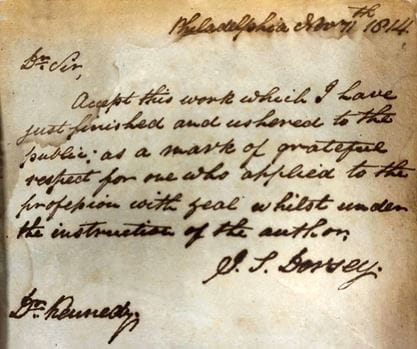 Philadelphia Nov 7th 1814.
Dr. Sir,
Accept this work which I have
just finished and ushered to the
public; as a mark of grateful
respect for one who applied to the
profession with zeal whilst under
the instruction of the author.
J. S. Dorsey.
Dr. Kennedy.